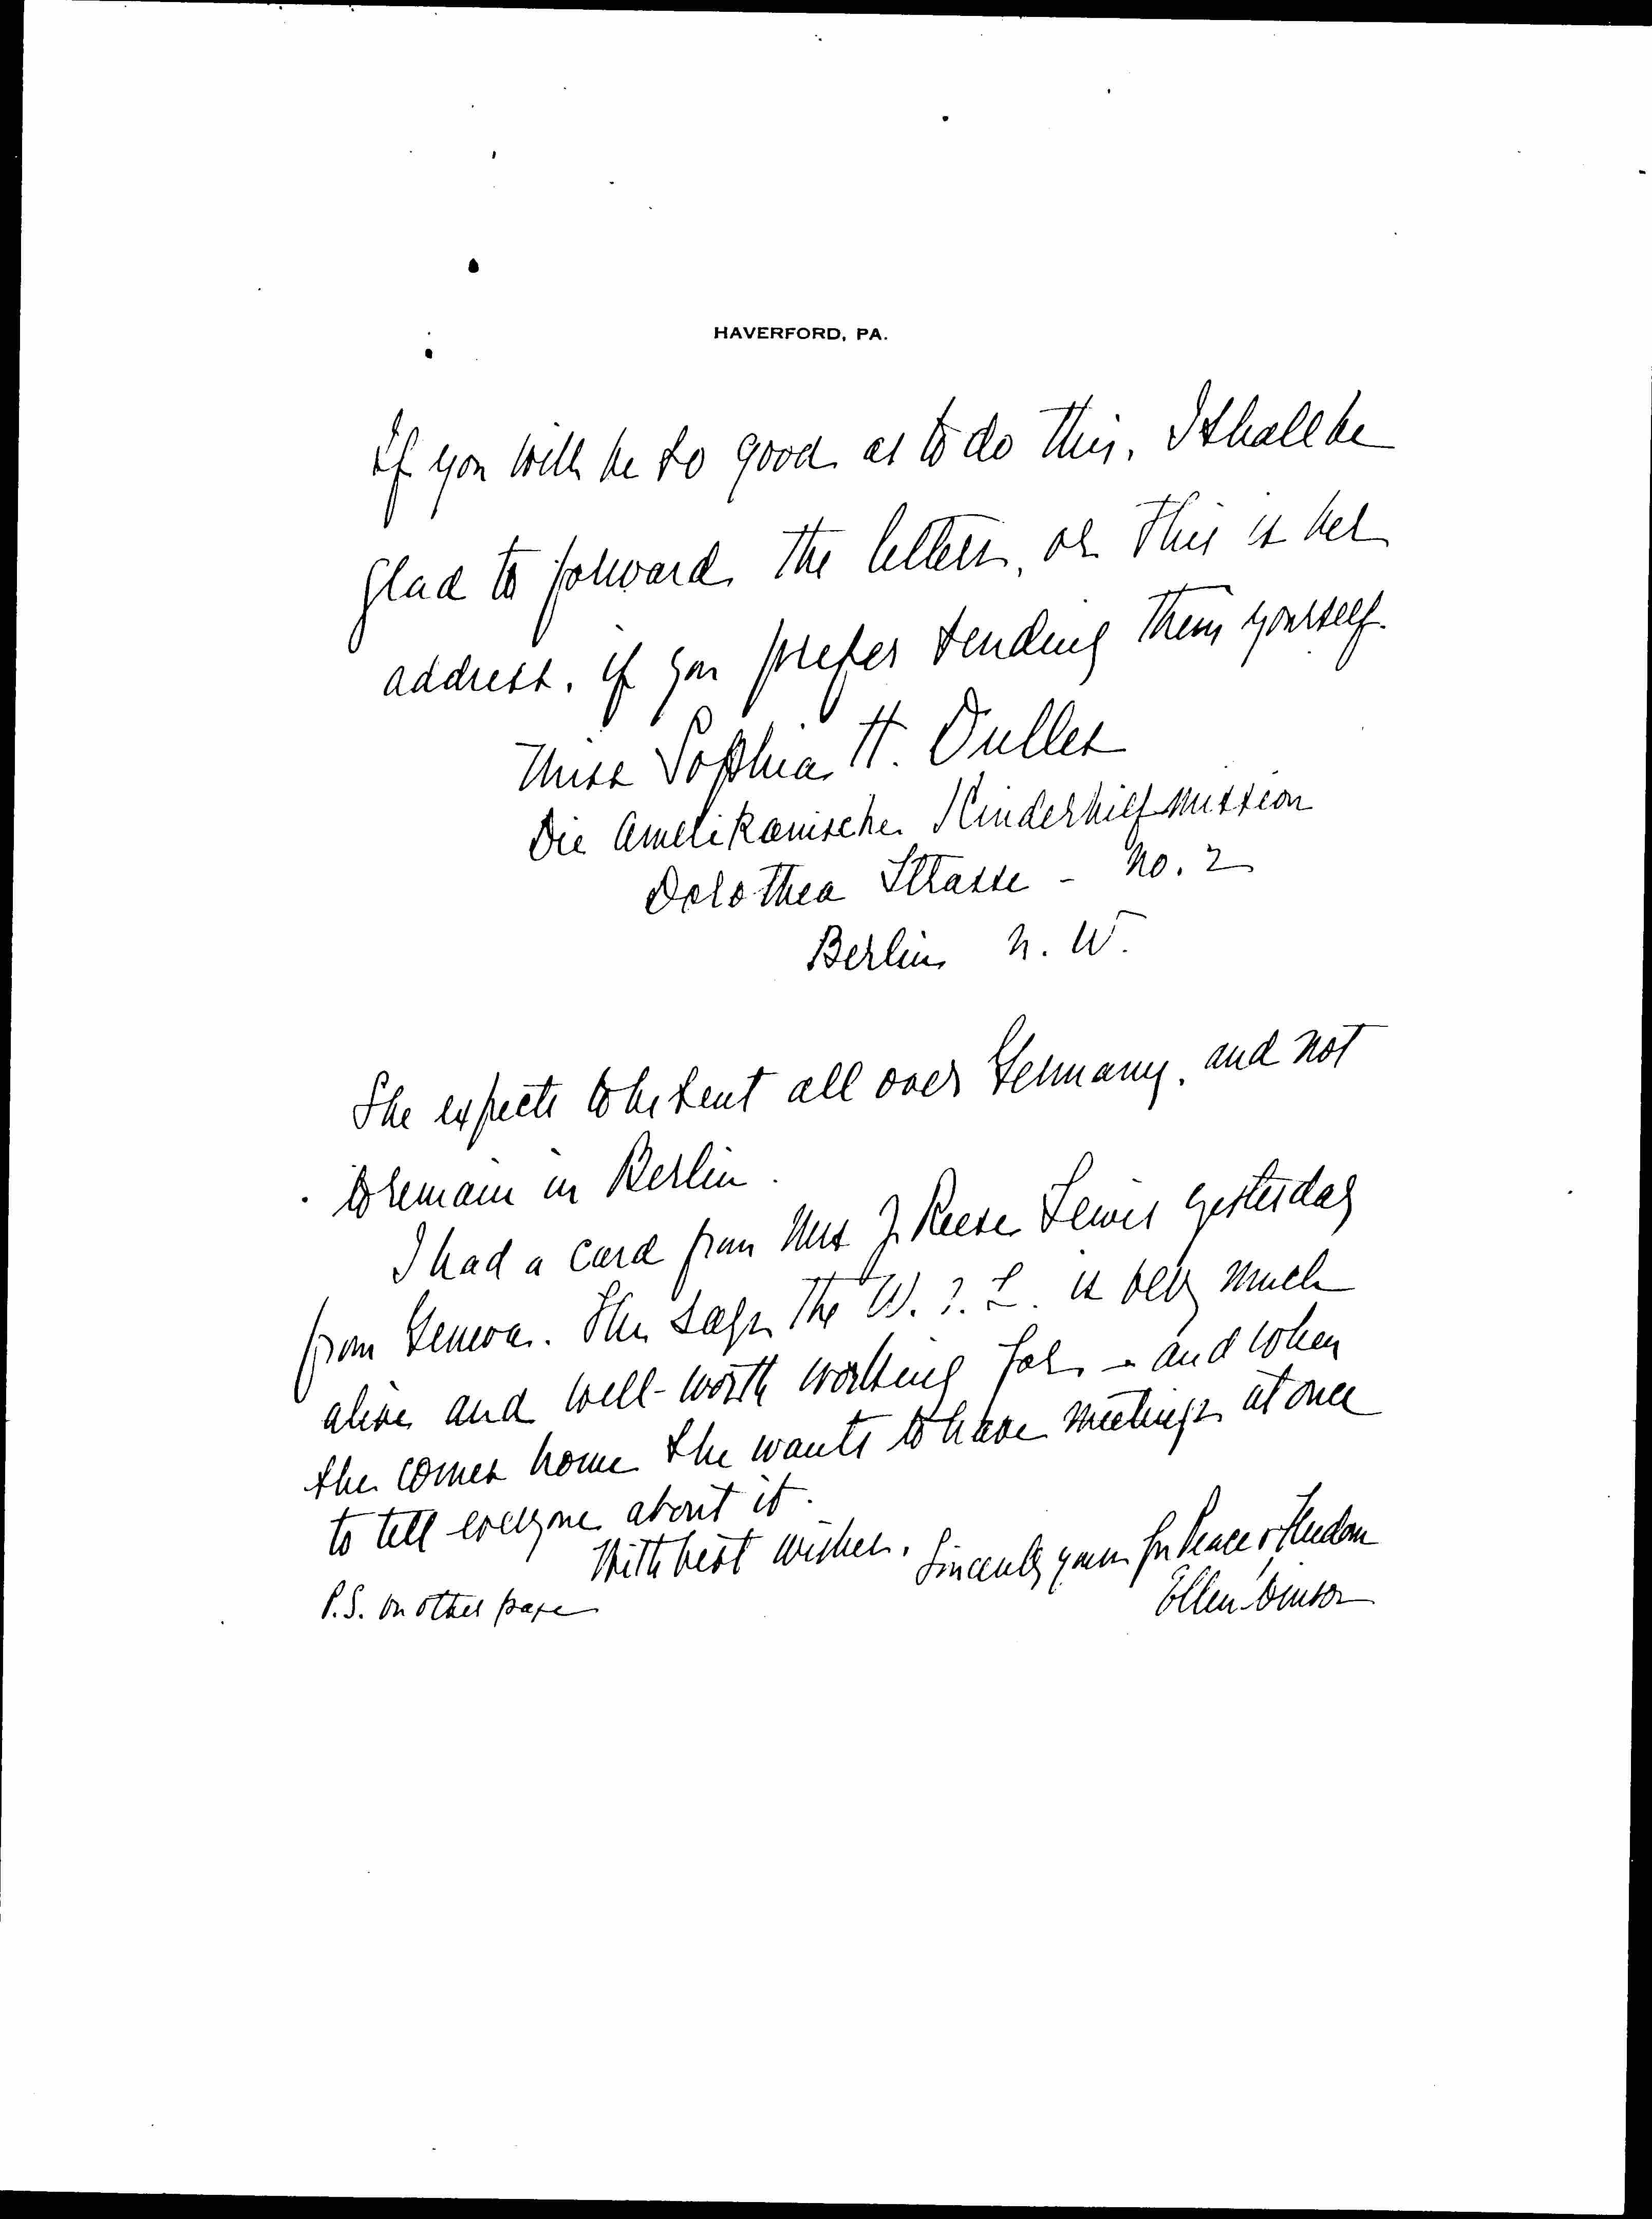 HAVERFORD, PA.
If you will be so good as to do this, I shall be
glad to forward the letters, or this is her
address, if you prefer sending them yourself.
Miss Sophia H. Dulles
Die Amerikanische Kinderhilfmission
Dorothea Strasse - No. 2
Berlin N. W.
She expects to be sent all over Germany, and not
to remain in Berlin.
I had a card from Mrs J. Reese Lewis yesterday
from Geneva. She says the W. I. L. is very much
alive and well-worth working for - and when
she comes home she wants to have meetings at once
to tell everyone about it.
With best wishes, Sincerely yours for Peace & Freedom
Ellen Winsor
P.S. on other page